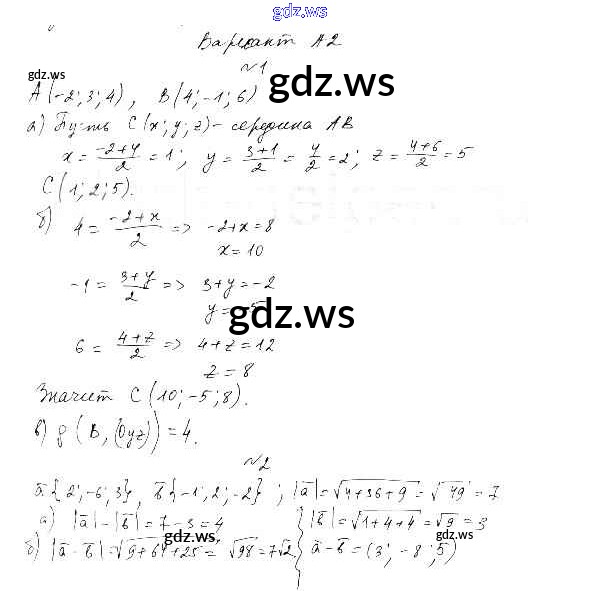 gdz.ws
Вариант А2
№1
gdz.ws
gdz.ws
A(-2; 3; 4), B(4; -1; 6)
а) Пусть C(x; y; z) - середина AB
x = \frac{-2+4}{2} = 1; y = \frac{3+1}{2} = \frac{4}{2} = 2; z = \frac{4+6}{2} = 5
C(1; 2; 5).
б) 4 = \frac{-2+x}{2} => -2+x = 8
x = 10
-1 = \frac{3+y}{2} => 3+y = -2
y = -5
gdz.ws
6 = \frac{4+z}{2} => 4+z = 12
z = 8
Значит C(10; -5; 8).
в) ρ(B, (Oyz)) = 4.
№2
gdz.ws
ā{2; -6; 3}, b̄{-1; 2; -2}; |ā| = √(4+36+9) = √49 = 7
а) |ā| - |b̄| = 7 - 3 = 4
|b̄| = √(1+4+4) = √9 = 3
gdz.ws
gdz.ws
б) |ā - b̄| = √(9+64+25) = √98 = 7√2.
ā - b̄ = (3; -8; 5)